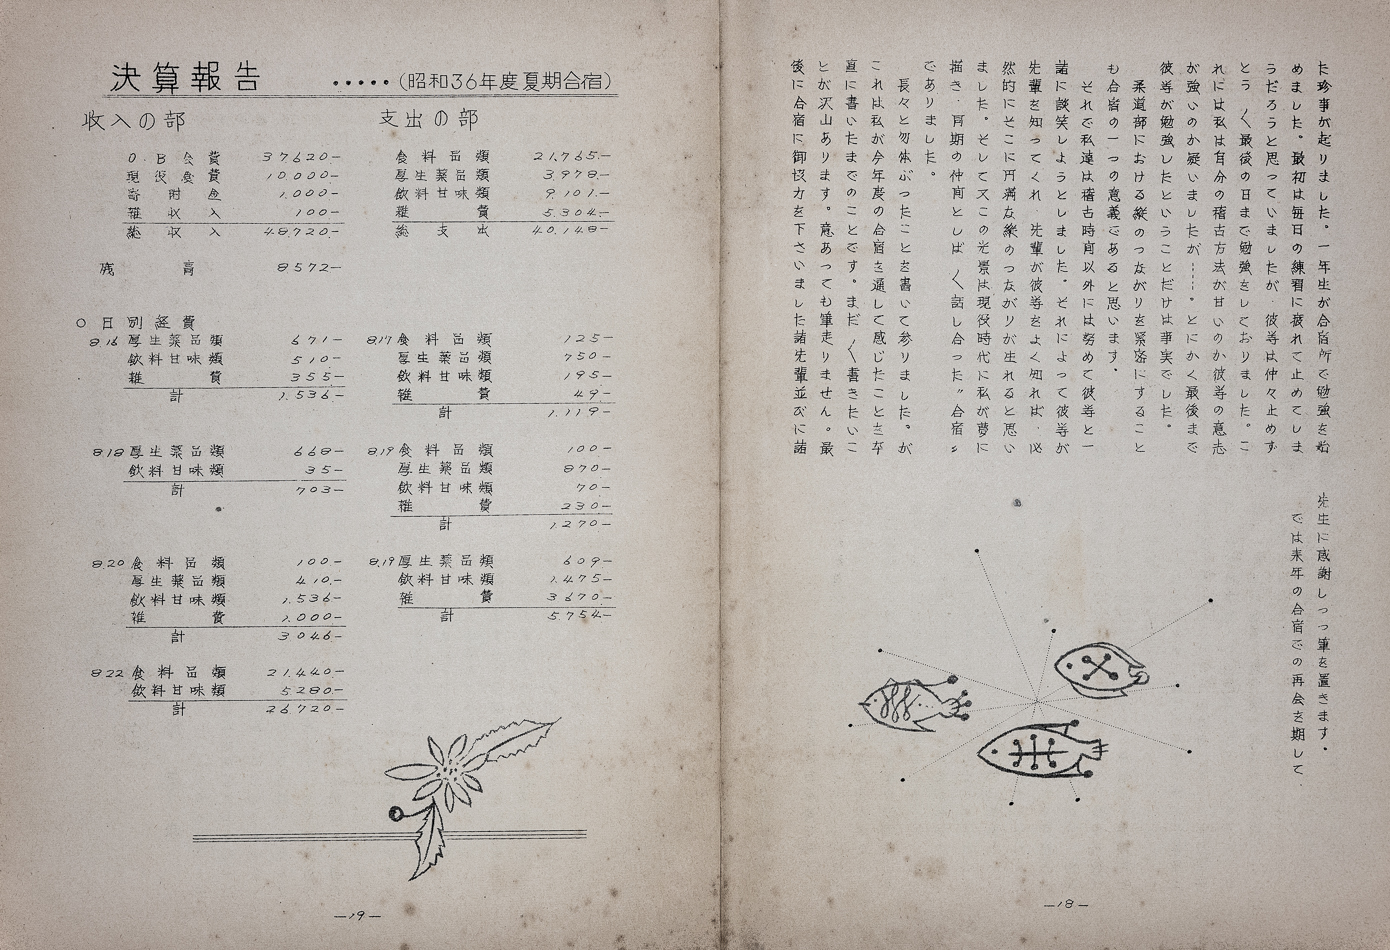 た珍事が起りました。一年生が合宿所で勉強を始
めました。最初は毎日の練習に疲れて止めてしま
うだろうと思っていましたが、彼等は仲々止めず
とう〳〵最後の日まで勉強をしておりました。こ
れには私は自分の稽古方法が甘いのか彼等の意志
が強いのか疑いましたが……。とにかく最後まで
彼等が勉強したということだけは事実でした。
柔道部における縦のつながりを緊密にすること
も合宿の一つの意義であると思います。
それで私達は稽古時间以外には努めて彼等と一
諸に談笑しようとしました。それによって彼等が
先輩を知ってくれ、先輩が彼等をよく知れば、必
然的にそこに円満な縦のつながりが生れると思い
ました。そして又この光景は現役時代に私が夢に
描き、同期の仲间としば〳〵話し合った〝合宿〟
でありました。
長々と勿体ぶったことを書いて参りました。が
これは私が今年度の合宿を通して感じたことを卒
直に書いたまでのことです。まだ〳〵書きたいこ
とが沢山あります。意あっても筆走りません。最
後に合宿に御協力を下さいました諸先輩並びに諸
先生に感謝しつつ筆を置きます。
では来年の合宿での再会を期して
—18—
決算報告 ・・・・・(昭和36年度夏期合宿)
収入の部
O.B会費 37620-
現役会費 10.000-
寄附金 1.000-
雑収入 100-
総収入 48.720-
残高 8572-
支出の部
食料品類 21.765-
厚生薬品類 3.978-
飲料甘味類 9.101-
雑費 5.304-
総支出 40.148-
○日別経費
8.16 厚生薬品類 671-
飲料甘味類 510-
雑費 355-
計 1.536-
8.17 食料品類 125-
厚生薬品類 750-
飲料甘味類 195-
雑費 49-
計 1.119-
8.18 厚生薬品類 668-
飲料甘味類 35-
計 703-
8.19 食料品類 100-
厚生薬品類 870-
飲料甘味類 70-
雑費 230-
計 1.270-
8.20 食料品類 100-
厚生薬品類 410-
飲料甘味類 1.536-
雑費 1.000-
計 3.046-
8.19 厚生薬品類 609-
飲料甘味類 1.475-
雑費 3670-
計 5.754-
8.22 食料品類 21.440-
飲料甘味類 5.280-
計 26.720-
—19—